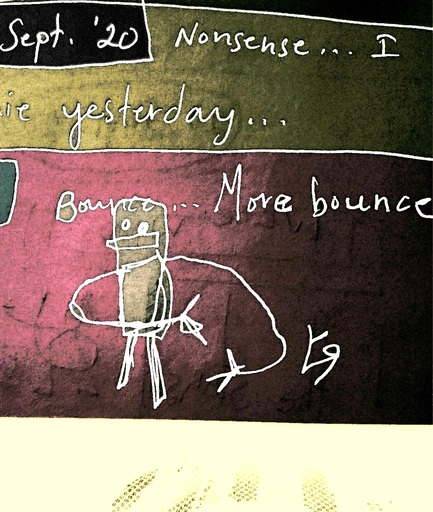 Sept. '20 Nonsense... I
ie yesterday...
Bounce... More bounce